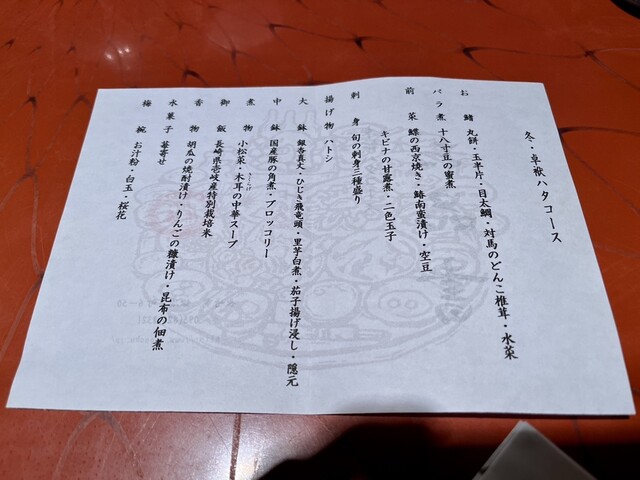 冬・卓袱ハタコース
お鰭 丸餅・玉子片・目太鯛・対馬のどんこ椎茸・水菜
バラ煮 十八寸豆の蜜煮
前菜 鰈の西京焼き・鯵南蛮漬け・空豆
キビナの甘露煮・二色玉子
刺身 旬の刺身三種盛り
揚げ物 ハトシ
大鉢 銀杏真丈・ひじき飛竜頭・里芋白煮・茄子揚げ浸し・隠元
中鉢 国産豚の角煮・ブロッコリー
煮物 小松菜・木耳の中華スープ
御飯 長崎県壱岐産特別栽培米
香物 胡瓜の焼酎漬け・りんごの糠漬け・昆布の佃煮
水菓子 苺寄せ
梅椀 お汁粉・白玉・桜花